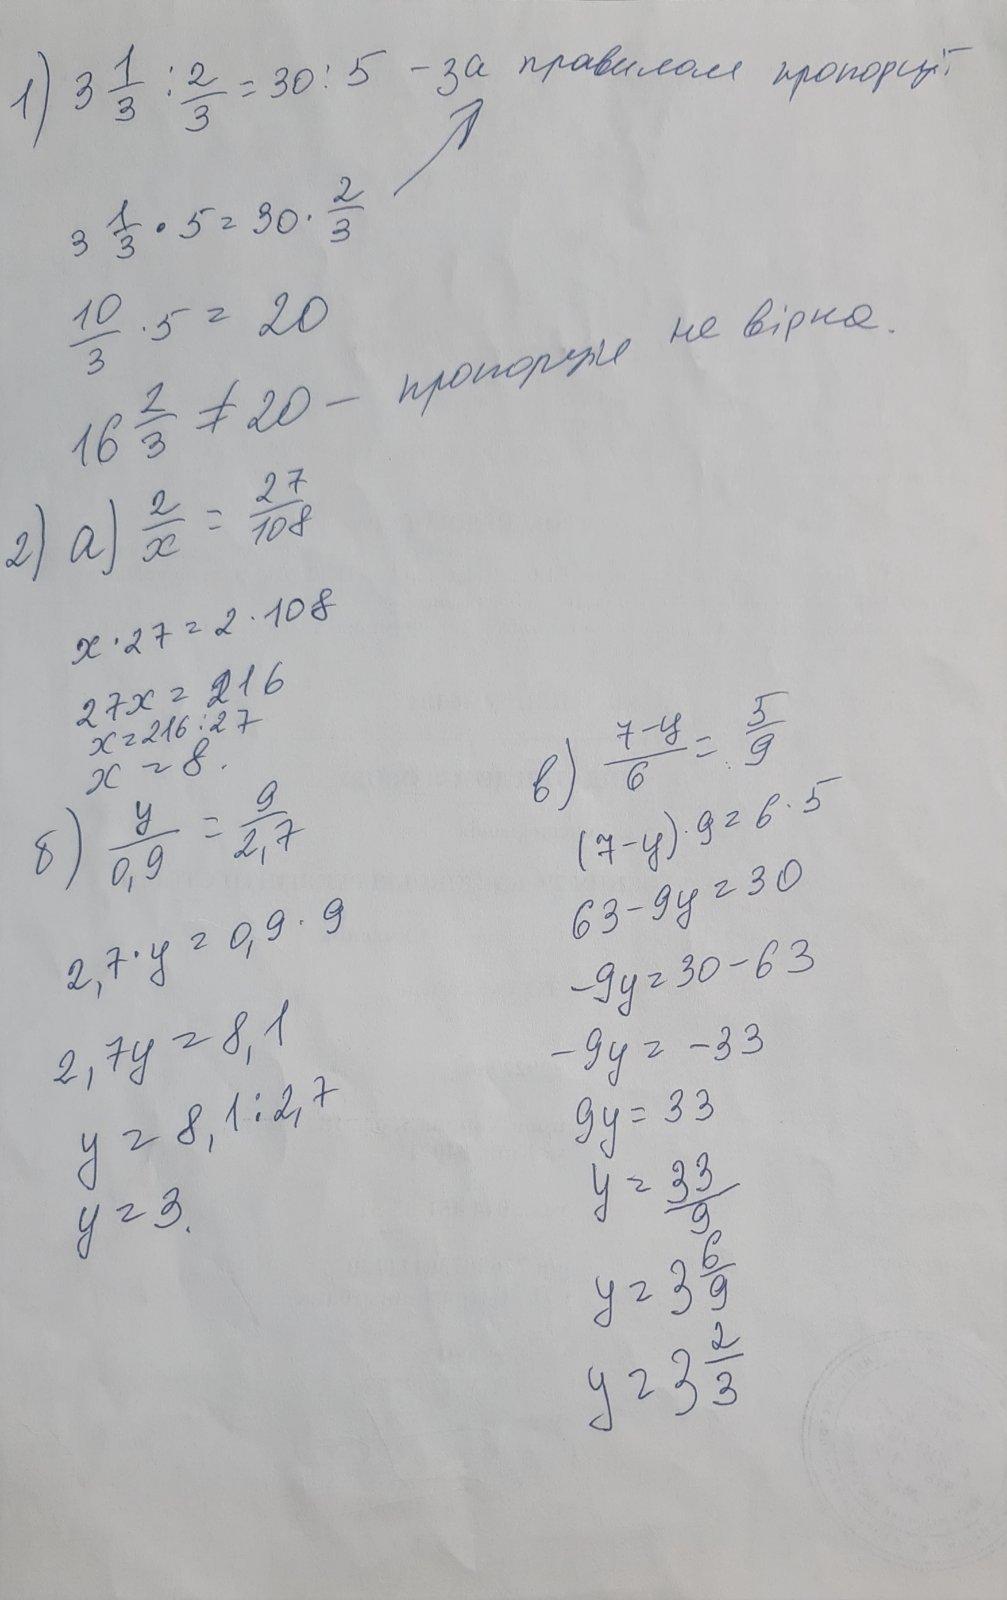 1) 3 1/3 : 2/3 = 30 : 5 - за правилом пропорції
3 1/3 · 5 = 30 · 2/3
10/3 · 5 = 20
16 2/3 ≠ 20 – пропорція не вірна.
2) а) 2/x = 27/108
x · 27 = 2 · 108
27x = 216
x = 216 : 27
x = 8.
б) y/0,9 = 9/2,7
2,7 · y = 0,9 · 9
2,7y = 8,1
y = 8,1 : 2,7
y = 3.
в) 7-y/6 = 5/9
(7-y) · 9 = 6 · 5
63 - 9y = 30
-9y = 30 - 63
-9y = -33
9y = 33
y = 33/9
y = 3 6/9
y = 3 2/3